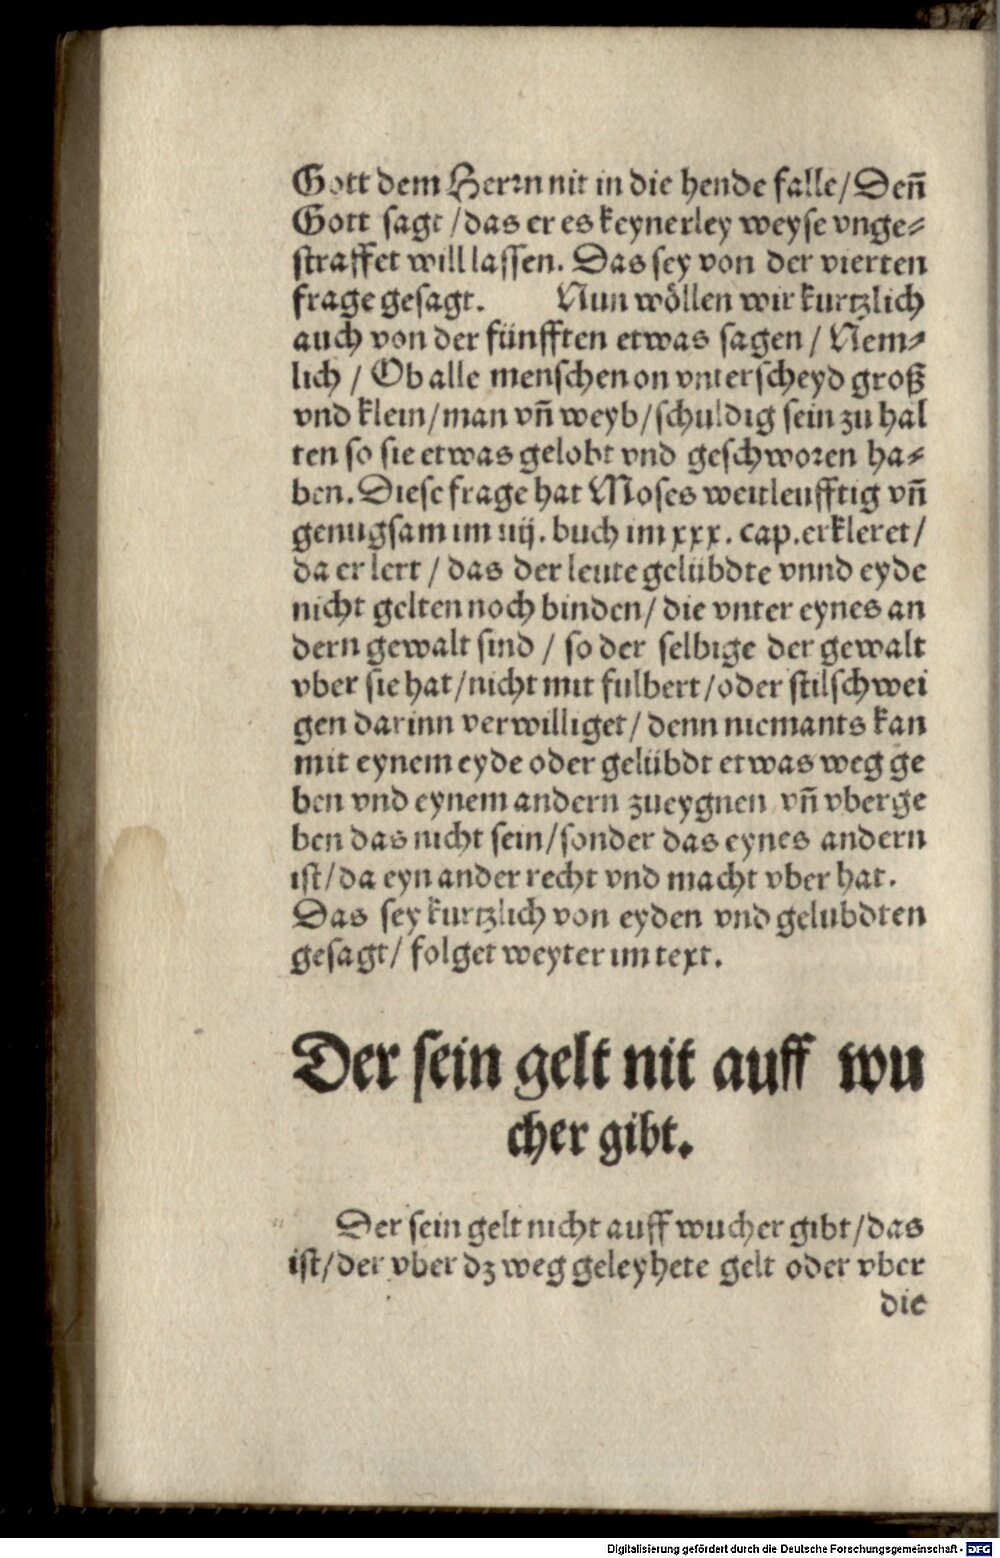 Gott dem Herrn nit in die hende falle/Deñ
Gott sagt /das er es keynerley weyse vnge⸗
straffet will lassen. Das sey von der vierten
frage gesagt. Nun wöllen wir kurtzlich
auch von der fünfften etwas sagen / Nem⸗
lich / Ob alle menschen on vnterscheyd groß
vnd klein/man vñ weyb/schuldig sein zu hal
ten so sie etwas gelobt vnd geschworen ha⸗
ben. Diese frage hat Moses weitleufftig vñ
genugsam im iiij. buch im xxx. cap. erkleret/
da er lert / das der leute gelübdte vnnd eyde
nicht gelten noch binden/ die vnter eynes an
dern gewalt sind / so der selbige der gewalt
vber sie hat/nicht mit fulbert/oder stilschwei
gen darinn verwilliget/ denn niemants kan
mit eynem eyde oder gelübdt etwas weg ge
ben vnd eynem andern zueygnen vñ vberge
ben das nicht sein/sonder das eynes andern
ist/da eyn ander recht vnd macht vber hat.
Das sey kurtzlich von eyden vnd gelubdten
gesagt/ folget weyter im text.
Der sein gelt nit auff wu
cher gibt.
Der sein gelt nicht auff wucher gibt/das
ist/der vber dz weg geleyhete gelt oder vber
die
Digitalisierung gefördert durch die Deutsche Forschungsgemeinschaft - DFG